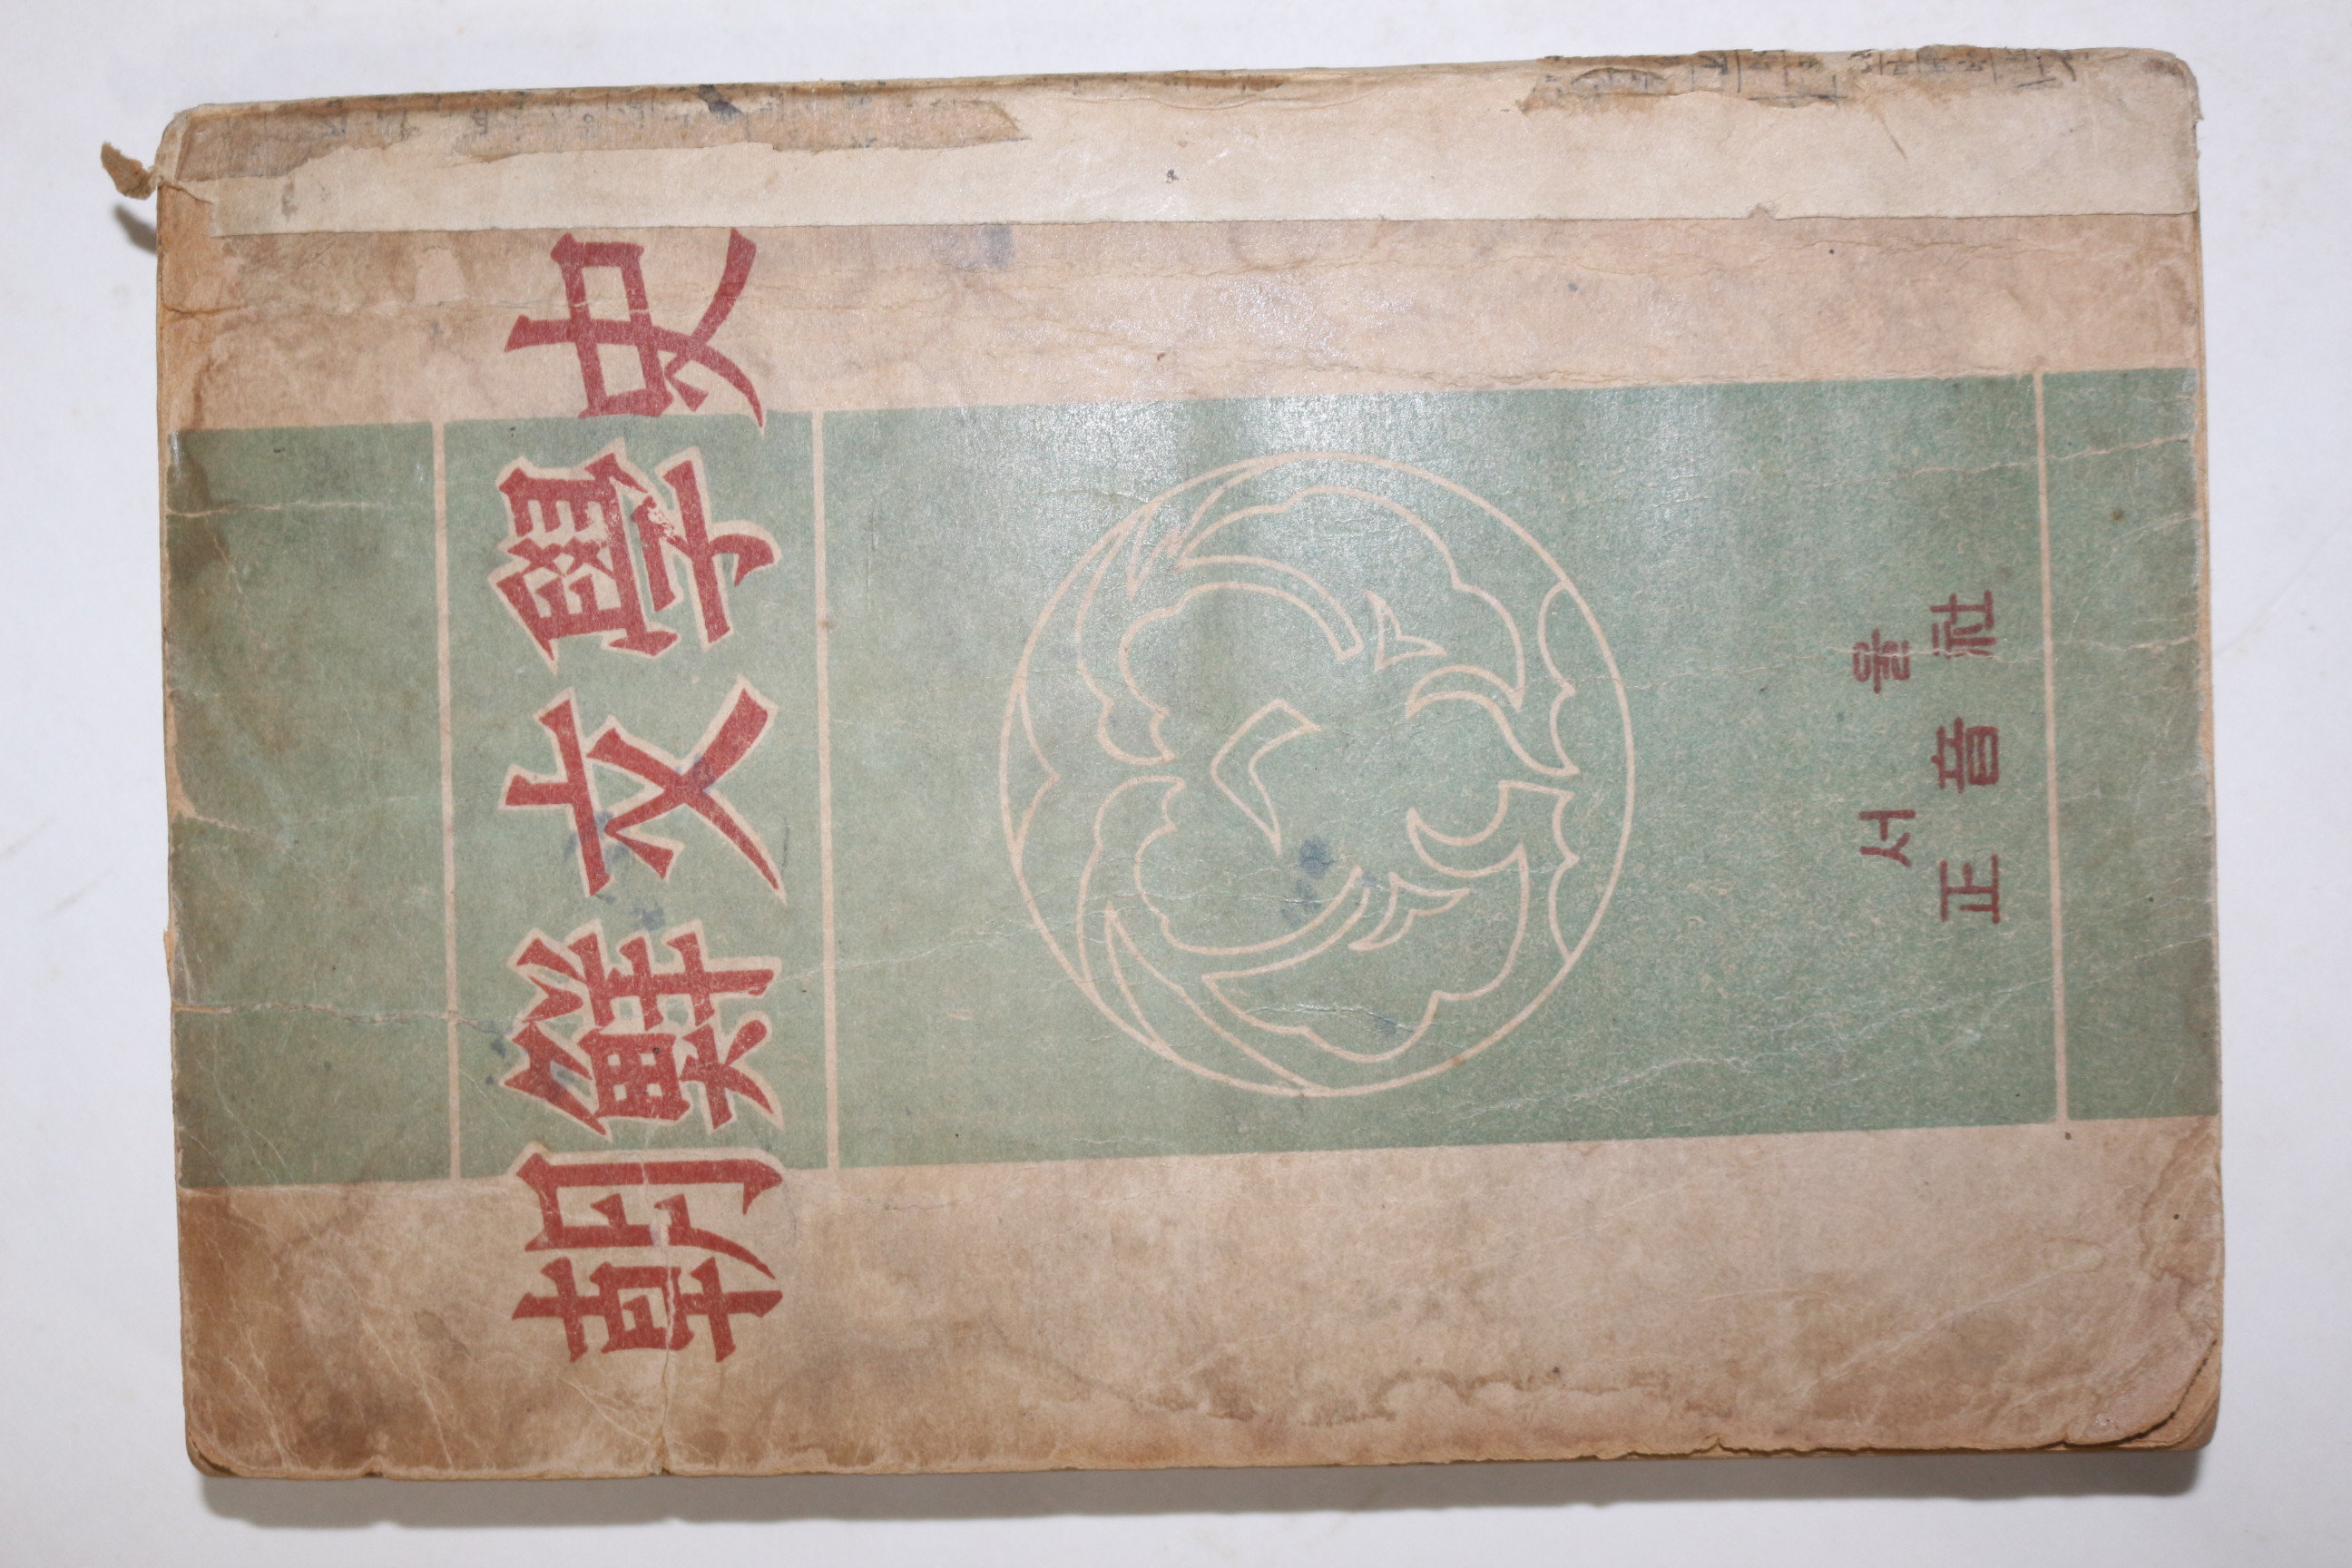 朝鮮文學史
서울
正音社